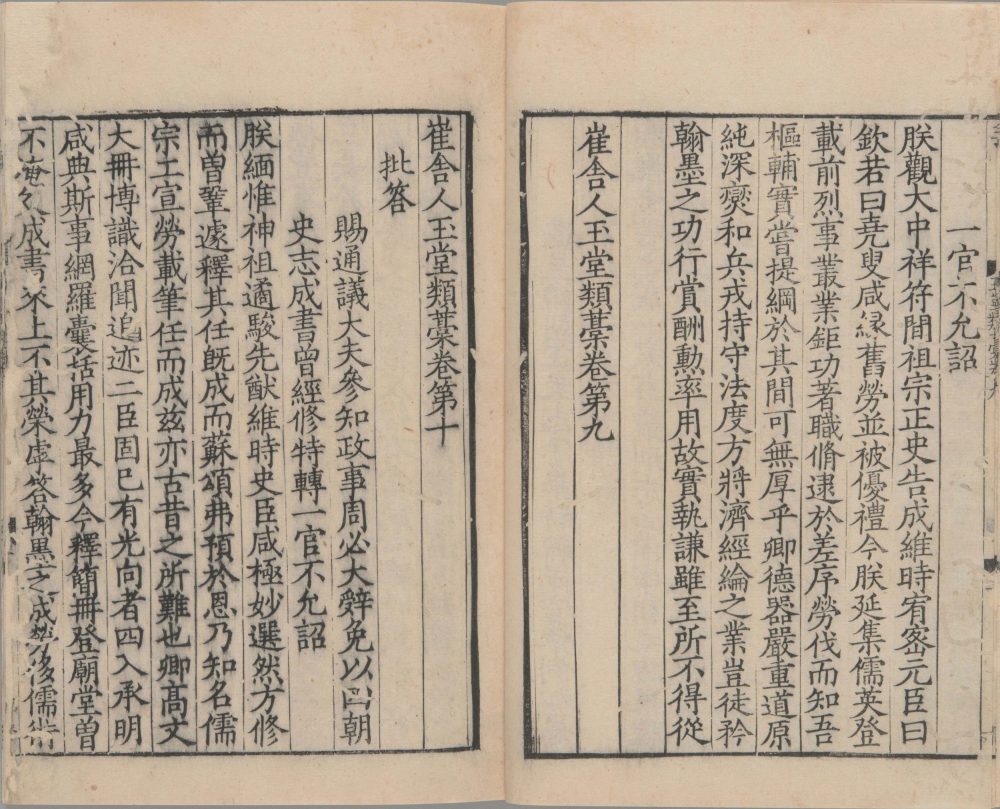 一官不允詔
朕觀大中祥符間祖宗正史告成維時宥密元臣曰
欽若曰堯叟咸縁舊勞並被優禮今朕延集儒英登
載前烈事叢業鉅功著職脩逮於差序勞伐而知吾
樞輔實嘗提綱於其間可無厚乎卿德器嚴重道原
純深爕和兵戎持守法度方將濟經綸之業豈徒矜
翰墨之功行賞酬勳率用故實執謙雖至所不得從
崔舎人玉堂類藁卷第九
崔舎人玉堂類藁卷第十
批答
賜通議大夫參知政事周必大辭免以四朝
史志成書曾經修特轉一官不允詔
朕緬惟神祖遹駿先猷維時史臣咸極妙選然方修
而曽鞏遽釋其任旣成而蘇頌弗預於恩乃知名儒
宗工宣勞載筆任而成兹亦古昔之所難也卿髙文
大冊博識洽聞追迹二臣固已有光向者四入承明
咸典斯事網羅囊括用力最多今釋簡冊登廟堂曽
不成書上不其榮虚答翰墨之成儒